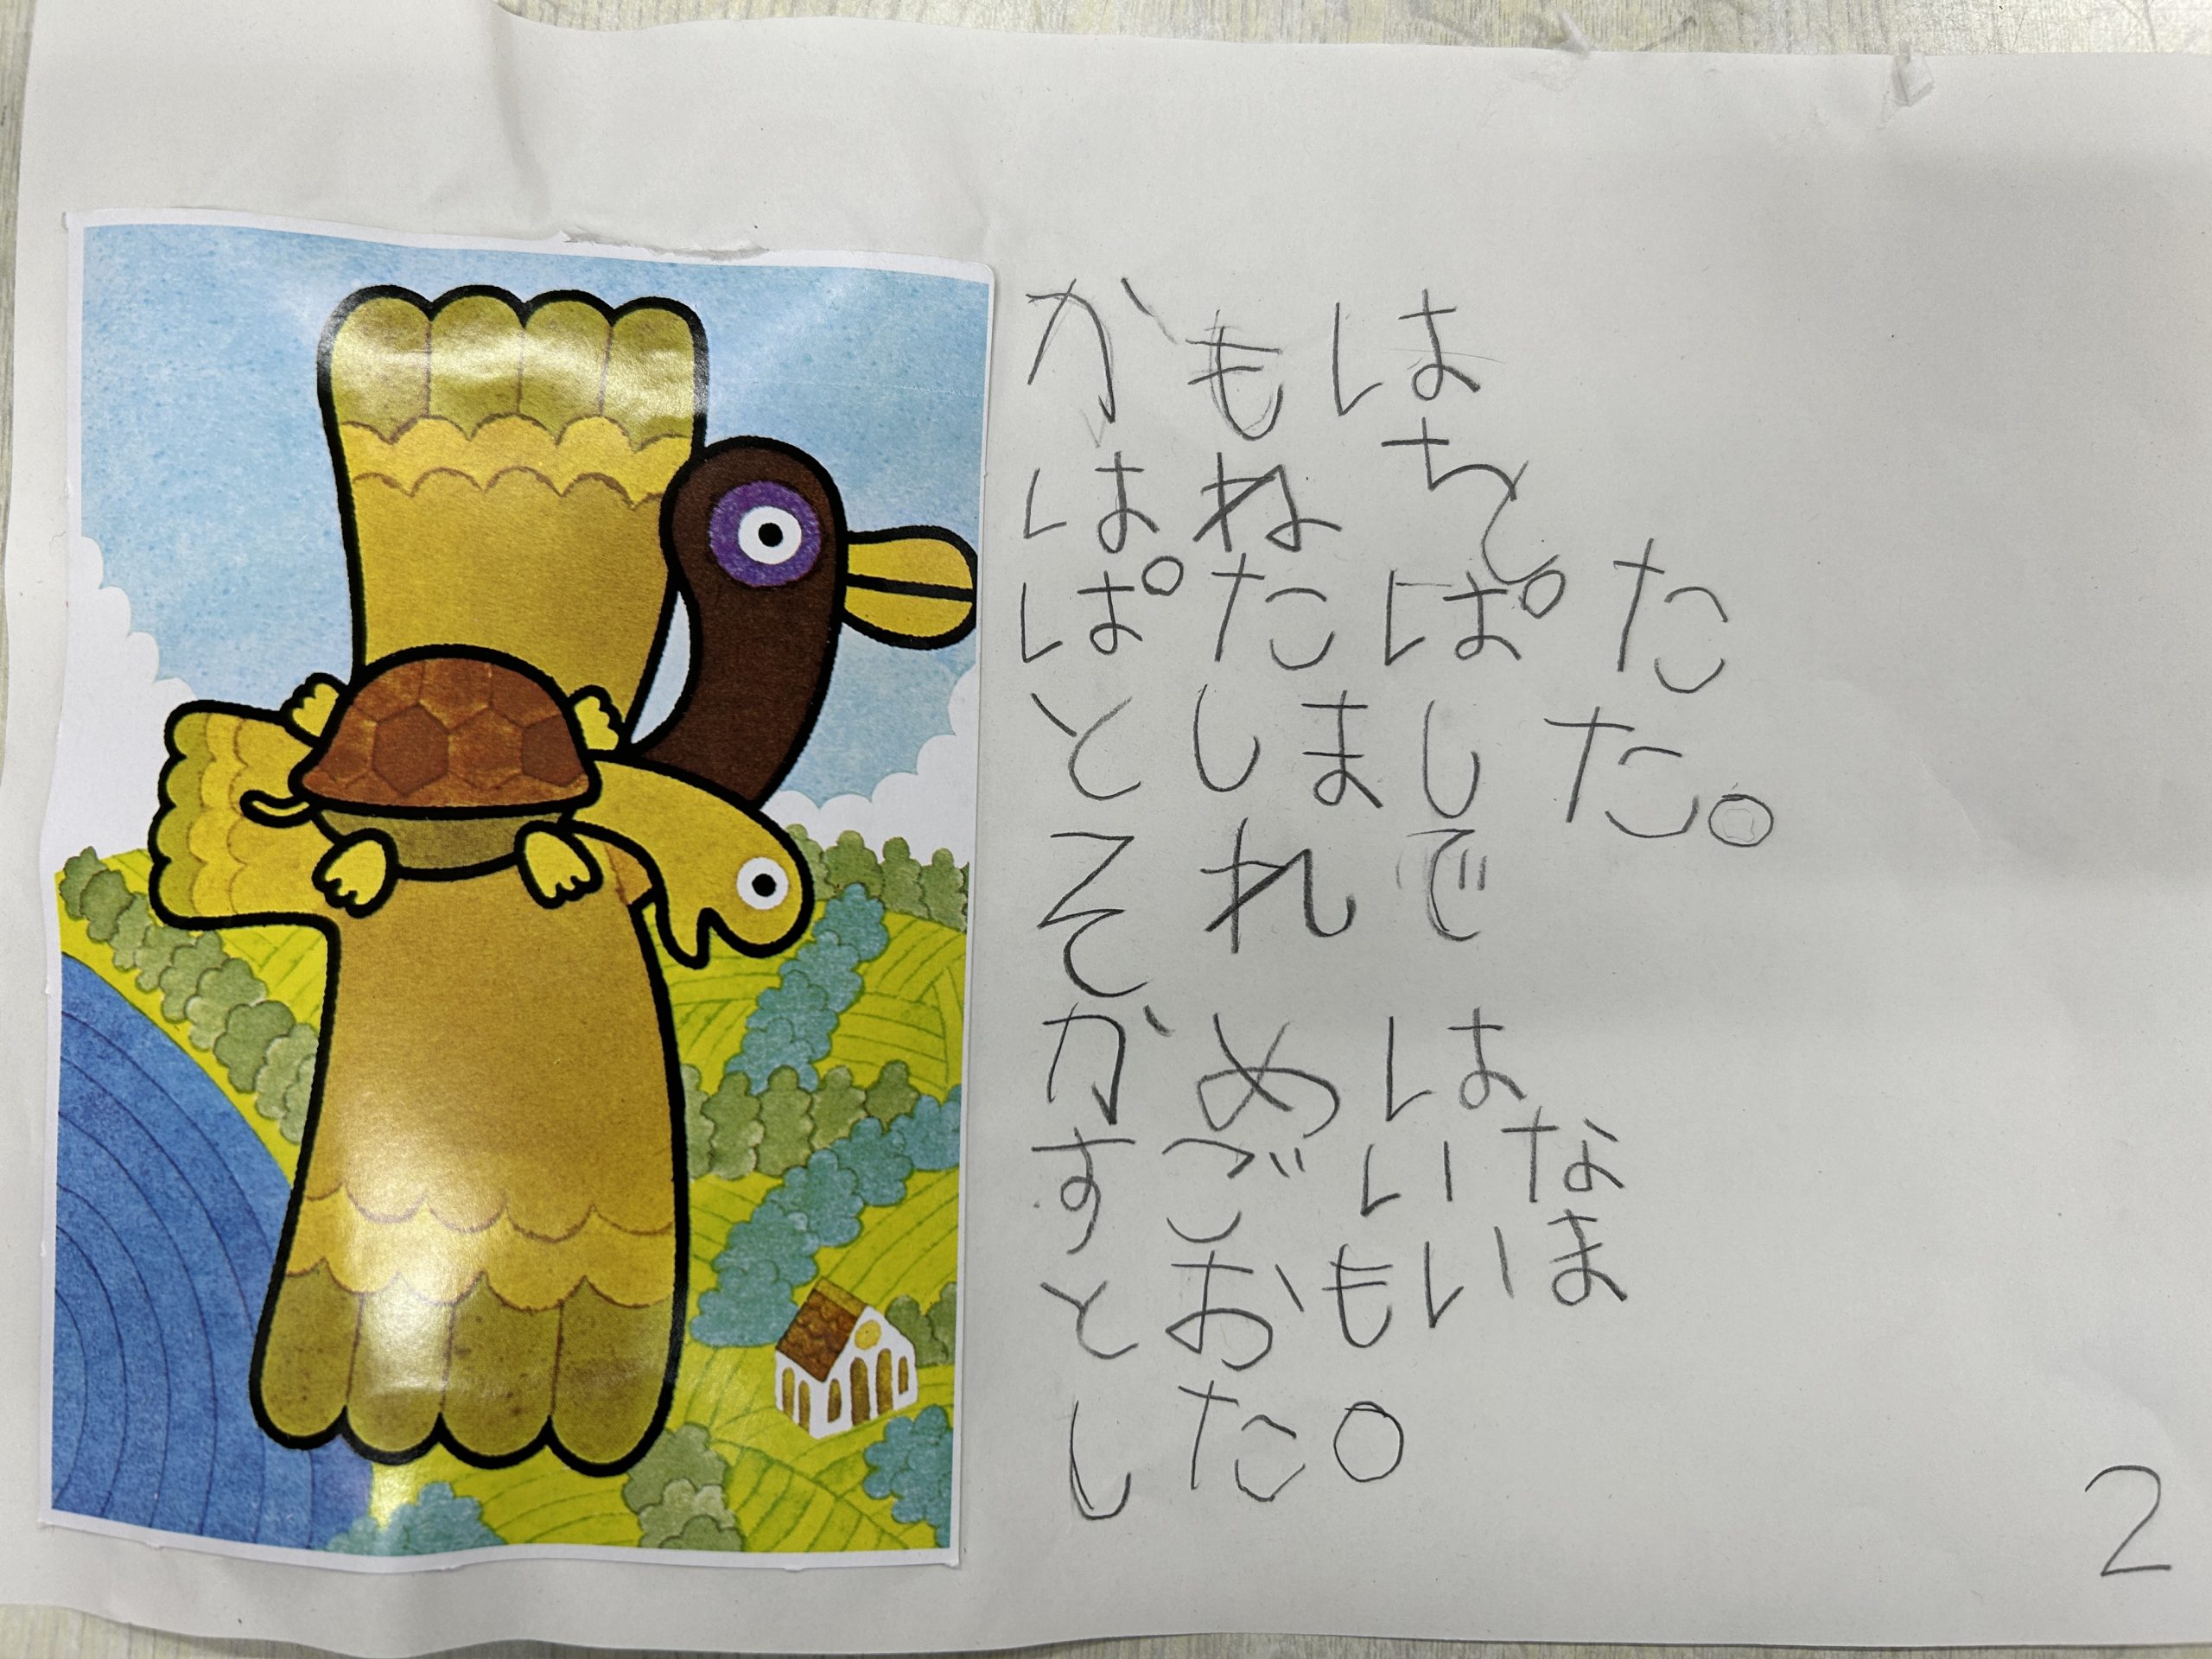 かもは
はねを
ぱたぱた
としました。
それで
かめは
すごいな
とおもいま
した。
2